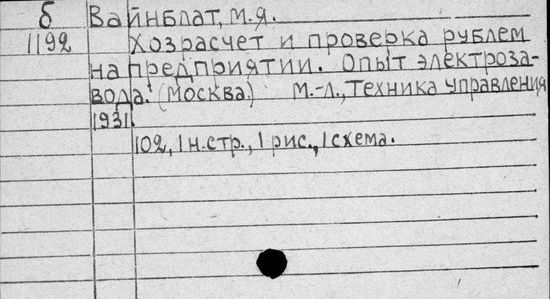 б Вайнблат, М.Я.
1192 Хозрасчет и проверка рублем
на предприятии. Опыт электроза-
вода. (Москва.) М.-Л., Техника управления
1931.
102, 1 н.стр., 1 рис., 1 схема.